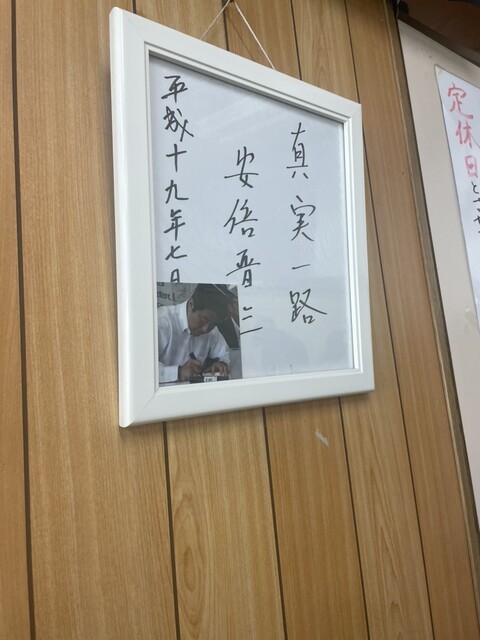 真実一路
安倍晋三
平成十九年七月
定休日